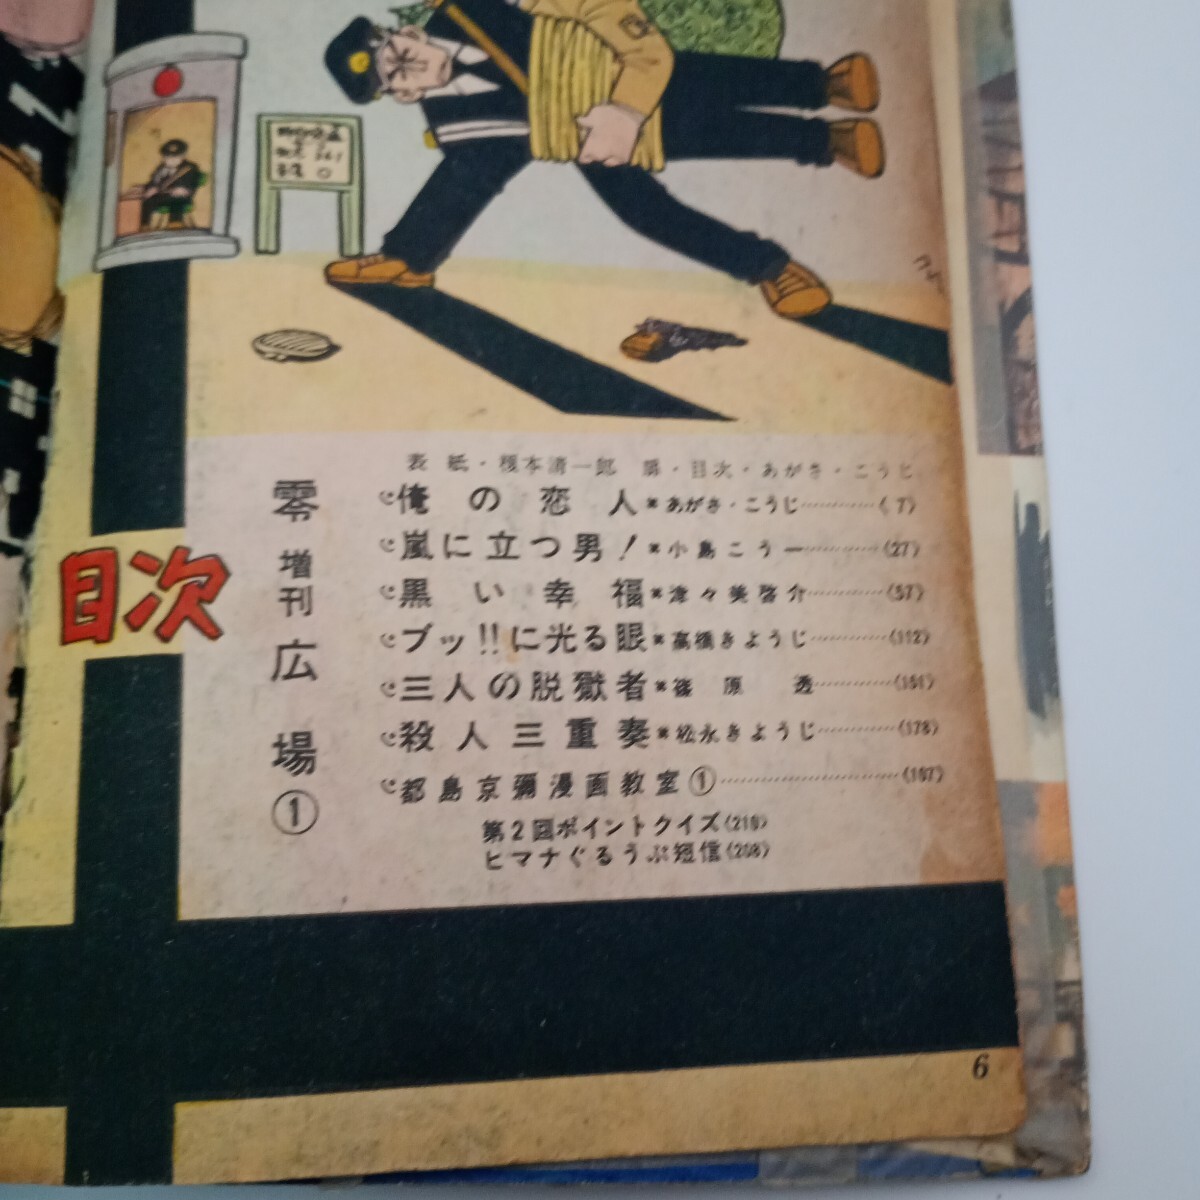 目次
零
増刊
広場①
表紙・榎本清一郎 扉・目次・あがさ・こうじ
俺の恋人※あがさ・こうじ…………(7)
嵐に立つ男!※小島こうー…………(27)
黒い幸福※津々美啓介…………(57)
ブッ!!に光る眼※高橋きようじ…………(112)
三人の脱獄者※篠原透…………(151)
殺人三重奏※松永きようじ…………(178)
都島京彌漫画教室①…………………(197)
第2回ポイントクイズ(210)
ヒマナぐるうぷ短信(208)
6